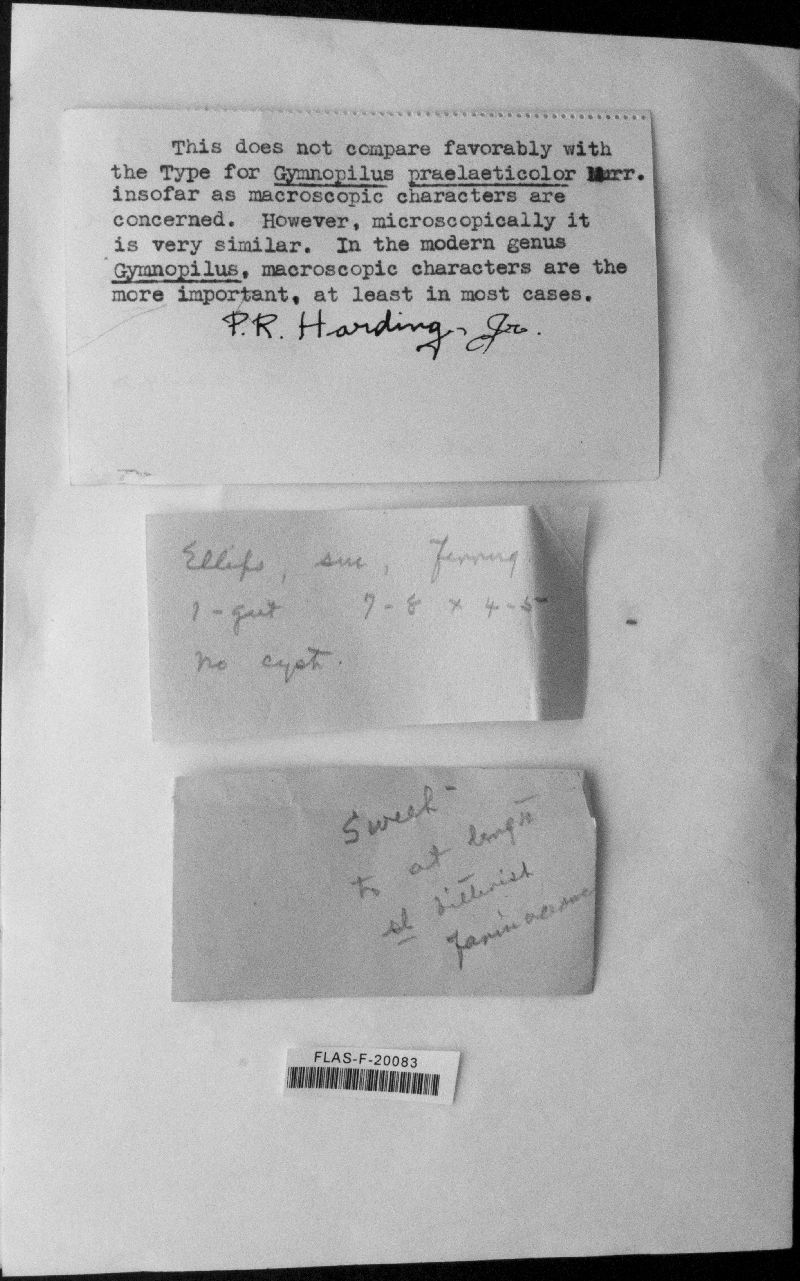 This does not compare favorably with
the Type for Gymnopilus praelaeticolor Murr.
insofar as macroscopic characters are
concerned. However, microscopically it
is very similar. In the modern genus
Gymnopilus, macroscopic characters are the
more important, at least in most cases.
P.R. Harding, Jr.
Ellips, sm, ferrug.
1-gut 7-8 x 4-5
no cyst.
Sweet-
to at length
sl bitterish
farinaceous
FLAS-F-20083